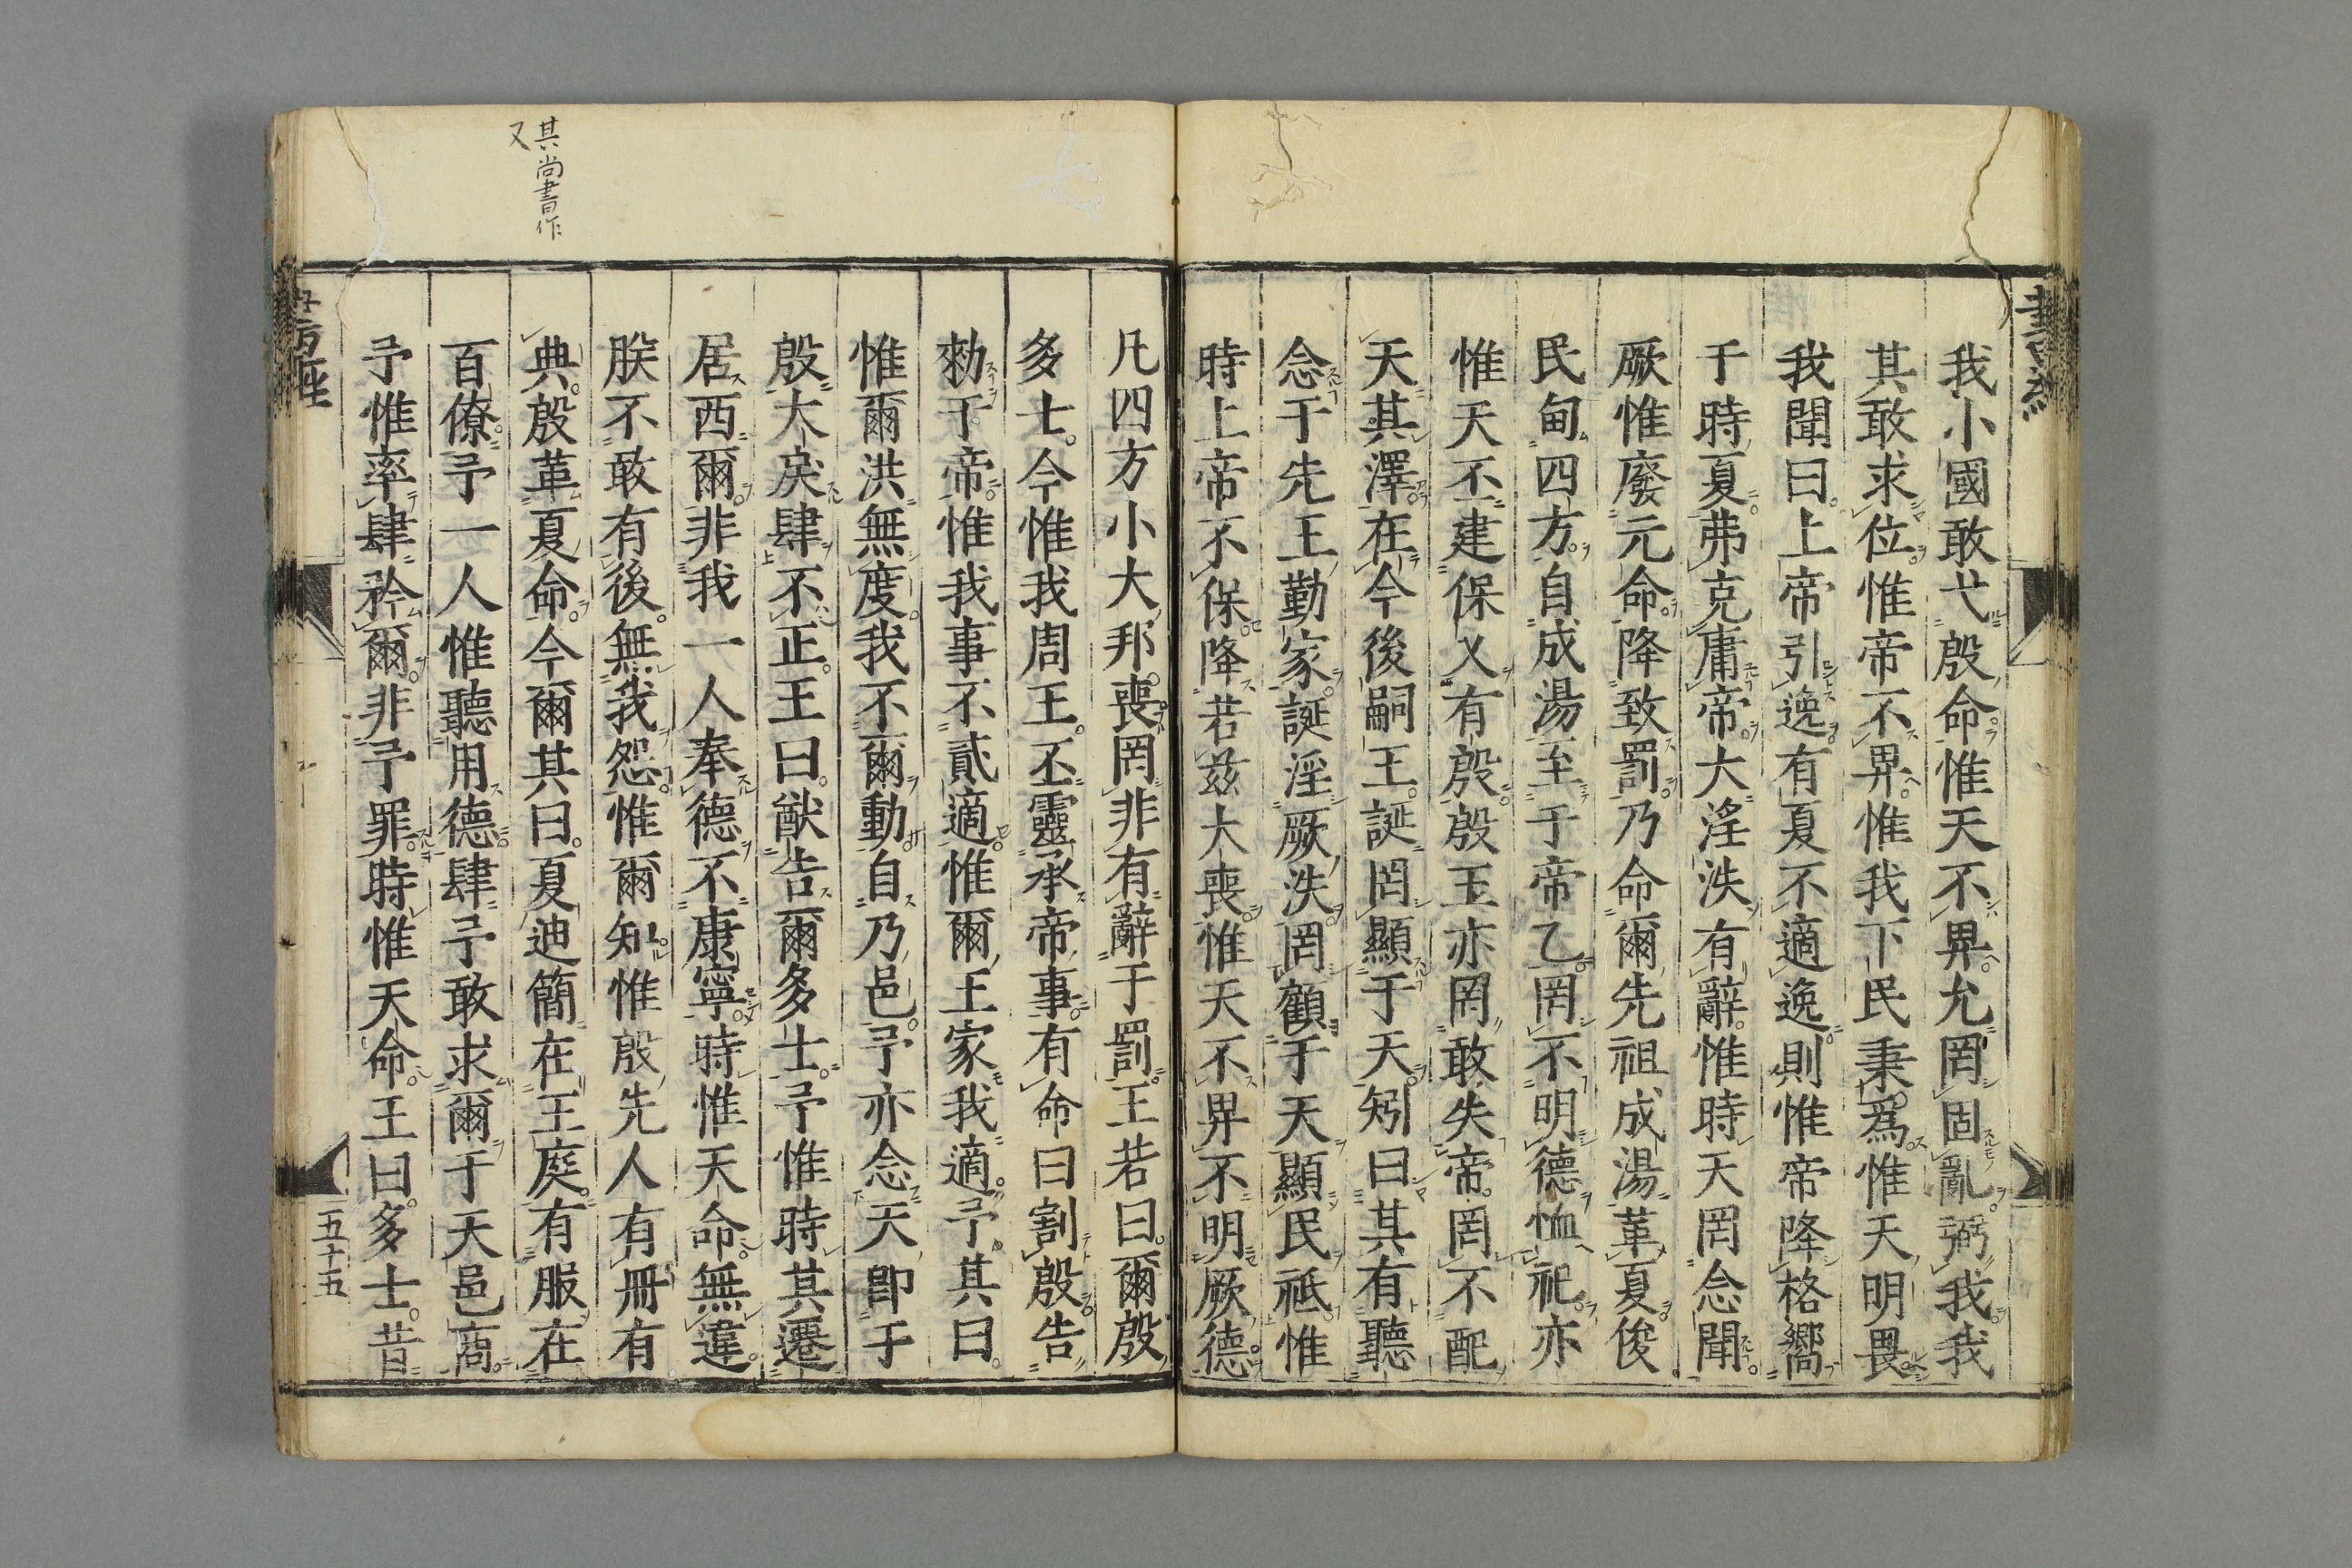 我小國敢弋殷命惟天不畀允罔固亂弼我我
其敢求位惟帝不畀惟我下民秉爲惟天明畏
我聞曰上帝引逸有夏不適逸則惟帝降格嚮
于時夏弗克庸帝大淫泆有辭惟時天罔念聞
厥惟廢元命降致罰乃命爾先祖成湯革夏俊
民甸四方自成湯至于帝乙罔不明德恤祀亦
惟天丕建保乂有殷殷王亦罔敢失帝罔不配
天其澤在今後嗣王誕罔顯于天矧曰其有聽
念于先王勤家誕淫厥泆罔顧于天顯民祗惟
時上帝不保降若茲大喪惟天不畀不明厥德
凡四方小大邦喪罔非有辭于罰王若曰爾殷
多士今惟我周王丕靈承帝事有命曰割殷告
勑于帝惟我事不貳適惟爾王家我適予其曰
惟爾洪無度我不爾動自乃邑予亦念天卽于
殷大戾肆不正王曰猷告爾多士予惟時其遷
居西爾非我一人奉德不康寧時惟天命無違
朕不敢有後無我怨惟爾知惟殷先人有冊有
典殷革夏命今爾其曰夏迪簡在王庭有服在
百僚予一人惟聽用德肆予敢求爾于天邑商
予惟率肆矜爾非予罪時惟天命王曰多士昔
其尚書作
又
五十五